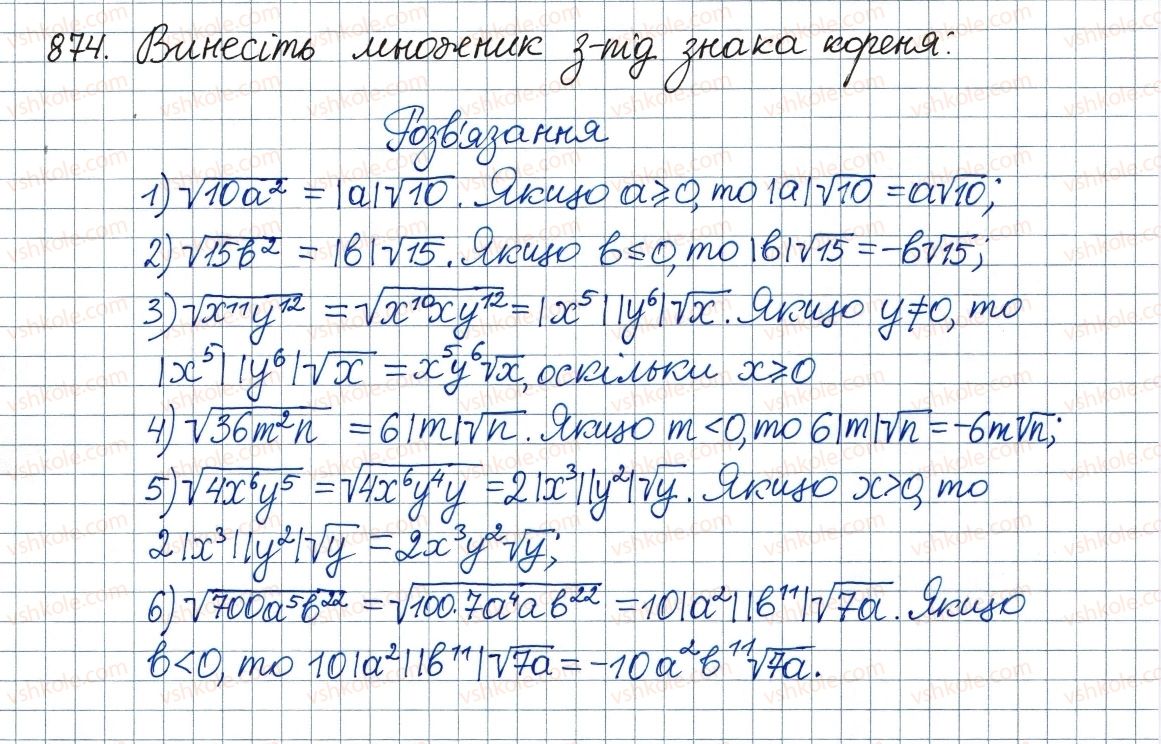 874. Винесіть множеник з-під знака кореня:
Розв'язання
1) √10a² = |a|√10. Якщо a ≥ 0, то |a|√10 = a√10;
2) √15b² = |b|√15. Якщо b ≤ 0, то |b|√15 = -b√15;
3) √x¹¹y¹² = √x¹⁰xy¹² = |x⁵||y⁶|√x. Якщо y ≠ 0, то
|x⁵||y⁶|√x = x⁵y⁶√x, оскільки x ≥ 0
4) √36m²n = 6|m|√n. Якщо m < 0, то 6|m|√n = -6m√n;
5) √4x⁶y⁵ = √4x⁶y⁴y = 2|x³||y²|√y. Якщо x > 0, то
2|x³||y²|√y = 2x³y²√y;
6) √700a⁵b²² = √100·7a⁴ab²² = 10|a²||b¹¹|√7a. Якщо
b < 0, то 10|a²||b¹¹|√7a = -10a²b¹¹√7a.